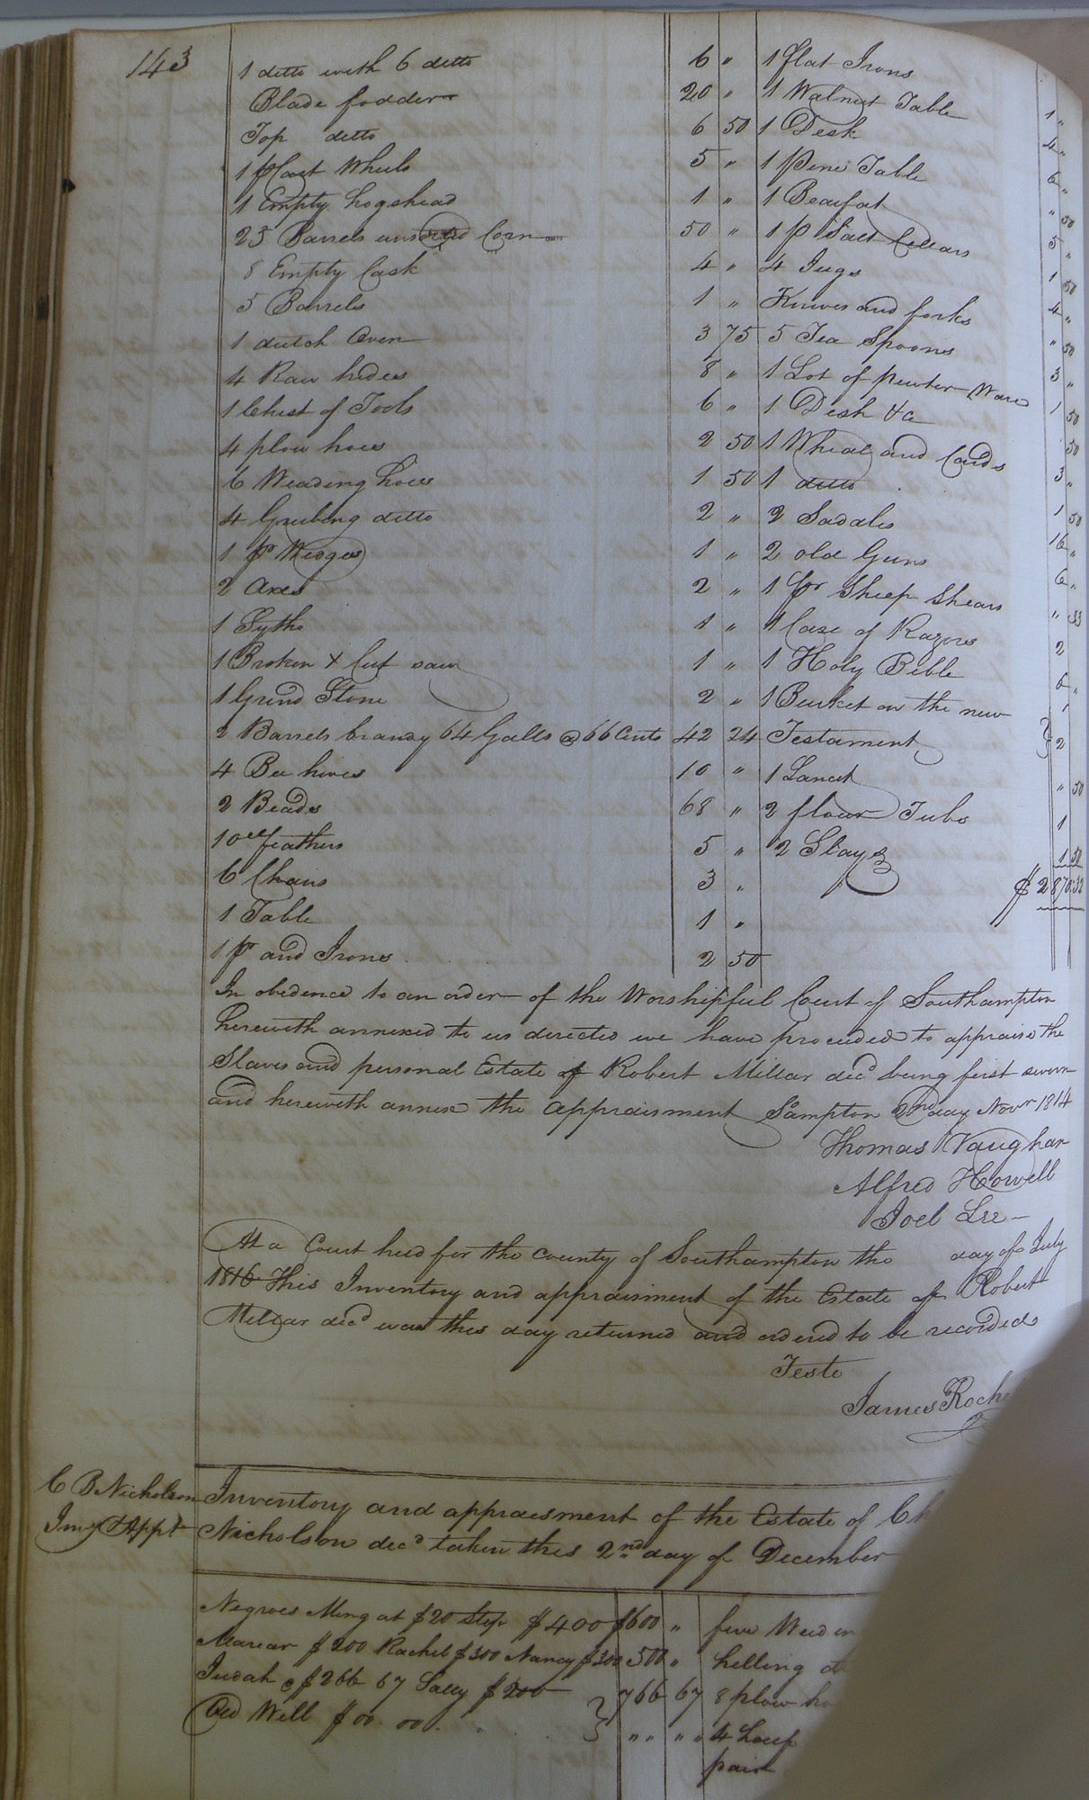 143
1 ditto with 6 ditto 6 "
Blade fodder 20 "
Top ditto 6 50
1 pr Cart Wheels 5 "
1 Empty hogshead 1 "
25 Barrels Corn 50 "
8 Empty Cask 4 "
5 Barrels 1 "
1 dutch Oven 3 75
4 Raw hides 8 "
1 Chest of Tools 6 "
4 plow hoes 2 50
6 Weading hoes 1 50
4 Grubing ditto 2 "
1 pr Wedges 1 "
2 Axes 2 "
1 Sythe 1 "
1 Broken X Cut saw 1 "
1 Grind Stone 2 "
2 Barrels brandy 64 Galls @ 66 Cents 42 24
4 Bee hives 10 "
2 Beads 68 "
feathers 5 "
6 Chars 3 "
1 Table 1 "
1 pr and Irons 2 50
1 flat Irons
1 Walnut Table
1 Desk
1 Pine Table
1 Beaufat
1 p Salt Cellars
4 Jugs
Knives and forks
5 Tea Spoones
1 Lot of pewter Ware
1 Desk &c
1 Wheal and Cards
1 ditto
2 Sadales
2 old Guns
1 pr Sheep Shears
1 Case of Razores
1 Holy Bible
1 Burket on the new
Testament
1 Lancet
2 flour Tubs
2 Slays
$ 2870.32
In obedence to an order of the Worshipful Court of Southampton
herewith annexed to us directed we have proceeded to appraise the
Slaves and personal Estate of Robert Millar decd being first sworn
and herewith annex the appraisment Sampton 2nd day Novr 1814
Thomas Vaughan
Alfred Howell
Joel Lee
At a Court held for the County of Southampton the day of July
1816 This Inventory and appraisment of the Estate of Robert
Millar decd was this day returned and ordered to be recorded
Teste
James Roche
C B Nicholson
Invy & Appt
Inventory and appraisment of the Estate of Ch
Nicholson decd taken this 2nd day of December
Negroes Ming at $20 $400 $600 " five Weed
Mariar $200 Rachel $300 Nancy $300 500 " hilling
Judah $266 67 Sally $200 766 67 8 plow ho
Old Will $00.00 " " " " 4
pair